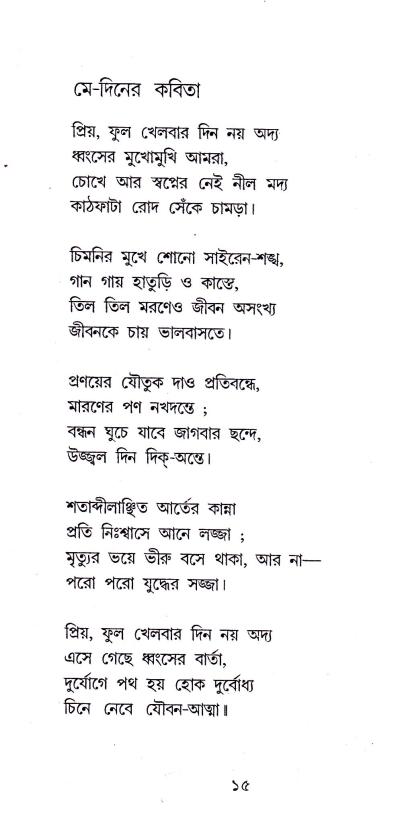 মে-দিনের কবিতা
প্রিয়, ফুল খেলবার দিন নয় অদ্য
ধ্বংসের মুখোমুখি আমরা,
চোখে আর স্বপ্নের নেই নীল মদ্য
কাঠফাটা রোদ সেঁকে চামড়া।
চিমনির মুখে শোনো সাইরেন-শঙ্খ,
গান গায় হাতুড়ি ও কাস্তে,
তিল তিল মরণেও জীবন অসংখ্য
জীবনকে চায় ভালবাসতে।
প্রণয়ের যৌতুক দাও প্রতিবন্ধে,
মারণের পণ নখদন্তে ;
বন্ধন ঘুচে যাবে জাগবার ছন্দে,
উজ্জ্বল দিন দিক্‌-অন্তে।
শতাব্দীলাঞ্ছিত আর্তের কান্না
প্রতি নিঃশ্বাসে আনে লজ্জা ;
মৃত্যুর ভয়ে ভীরু বসে থাকা, আর না—
পরো পরো যুদ্ধের সজ্জা।
প্রিয়, ফুল খেলবার দিন নয় অদ্য
এসে গেছে ধ্বংসের বার্তা,
দুর্যোগে পথ হয় হোক দুর্বোধ্য
চিনে নেবে যৌবন-আত্মা॥
১৫